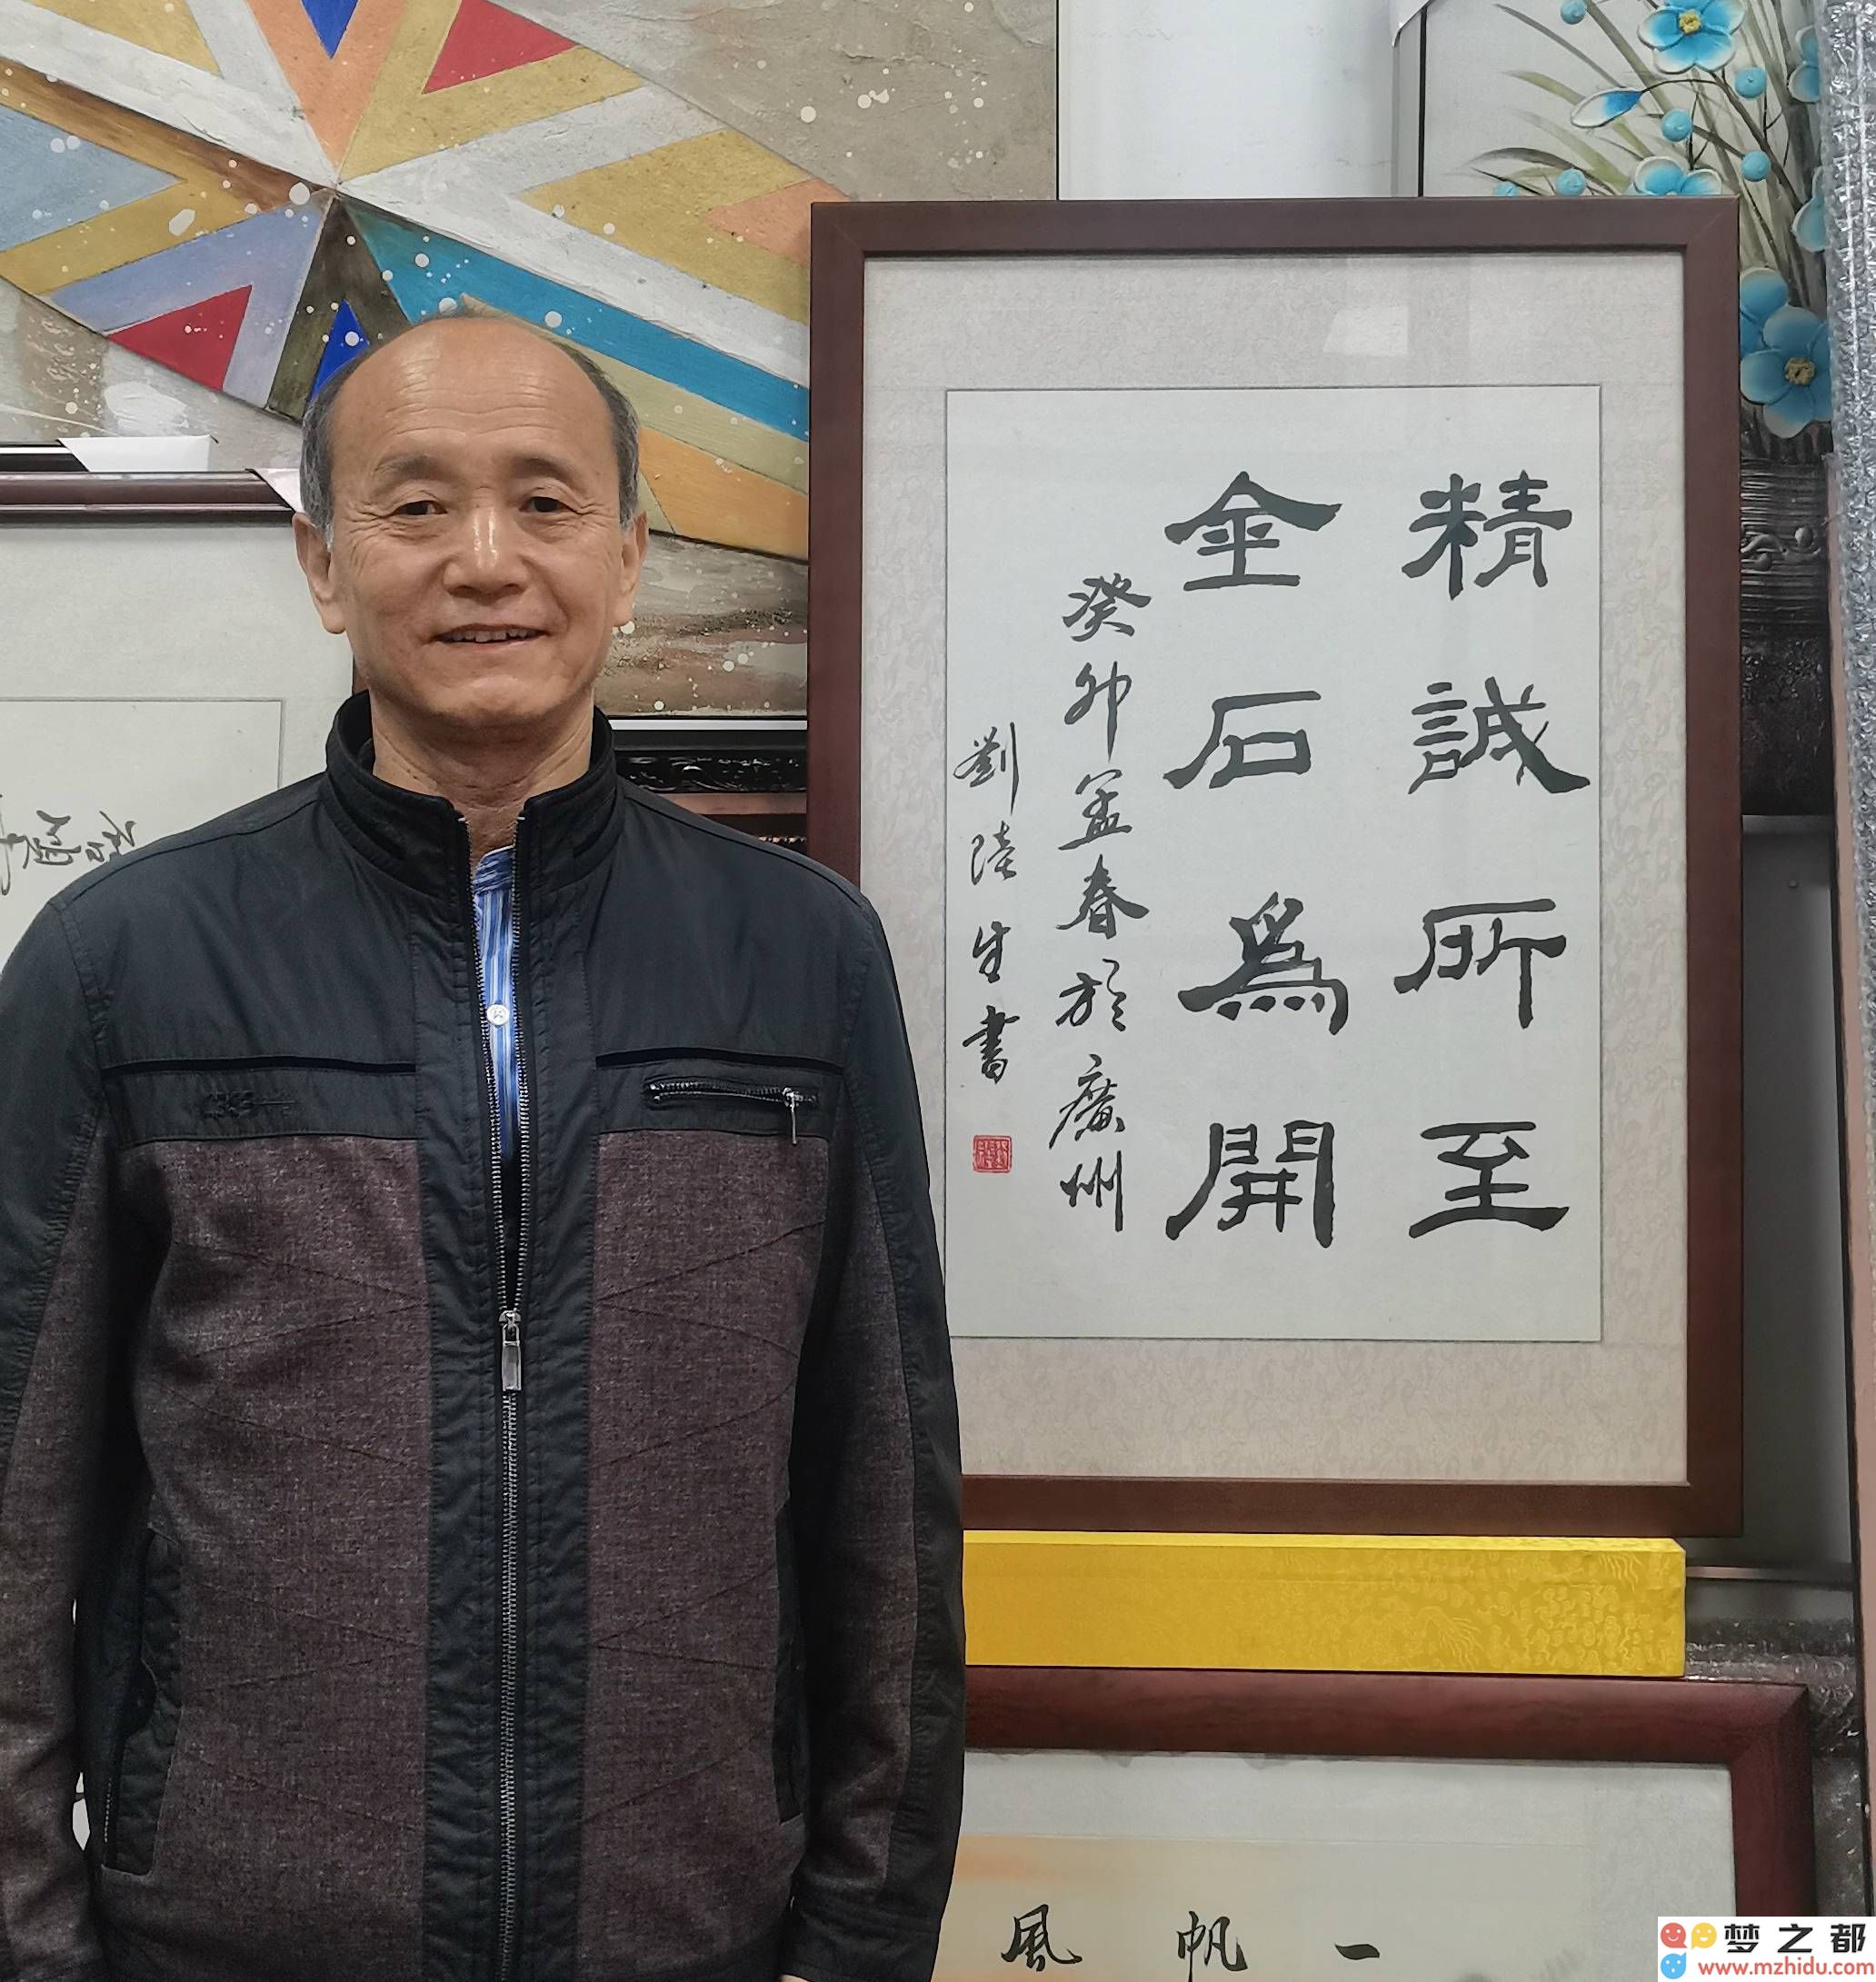 精誠所至
金石為開
癸卯孟春於廣州
劉陸生書
一帆風
梦之都
www.mzhidu.com